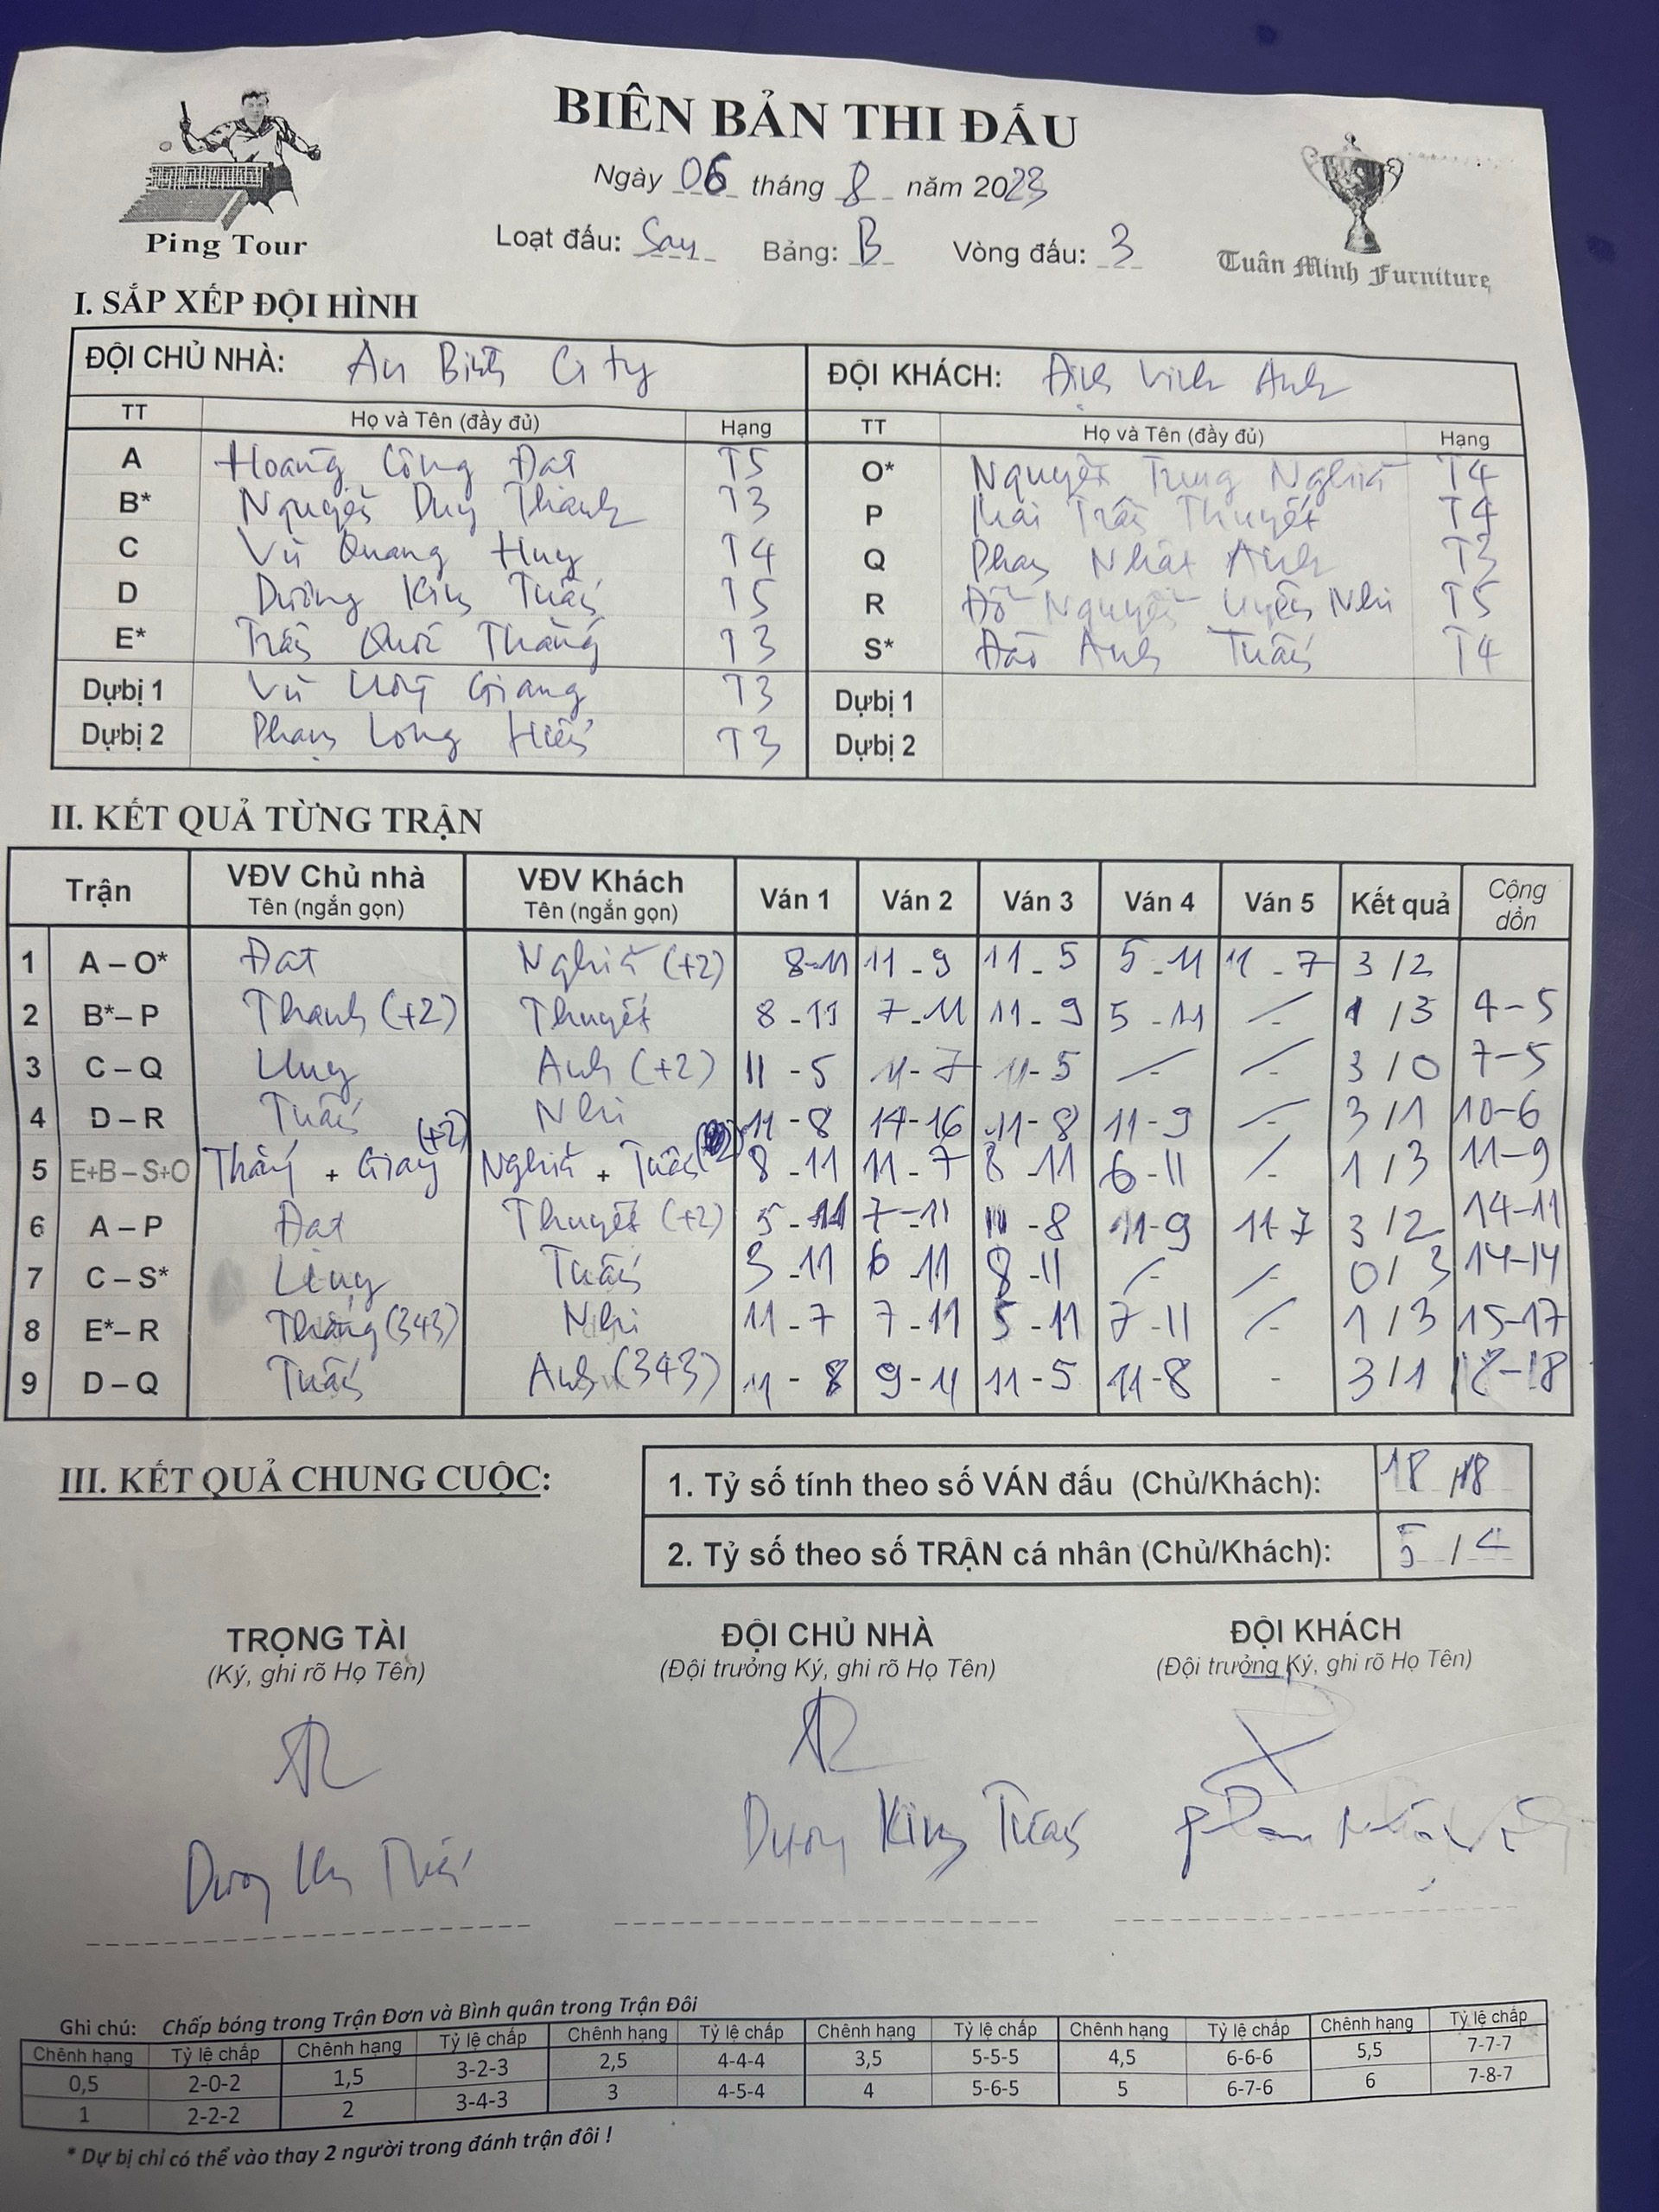 BIÊN BẢN THI ĐẤU
Ngày 06 tháng 8 năm 2023
Ping Tour
Loạt đấu: Sau Bảng: B Vòng đấu: 3
Tuân Minh Furniture
I. SẮP XẾP ĐỘI HÌNH
ĐỘI CHỦ NHÀ: An Bình City ĐỘI KHÁCH: Định Vinh Anh
TT Họ và Tên (đầy đủ) Hạng TT Họ và Tên (đầy đủ) Hạng
A Hoàng Công Đạt T5 O* Nguyễn Trung Nghĩa T4
B* Nguyễn Duy Thanh T3 P Mai Trần Thuyết T4
C Vũ Quang Huy T4 Q Phan Nhật Anh T3
D Dương Kim Tuấn T5 R Đỗ Nguyễn Uyên Nhi T5
E* Trần Quốc Thắng T3 S* Đào Anh Tuấn T4
Dự bị 1 Vũ Giang T3 Dự bị 1
Dự bị 2 Phạm Long Hiếu T3 Dự bị 2
II. KẾT QUẢ TỪNG TRẬN
Trận VĐV Chủ nhà Tên (ngắn gọn) VĐV Khách Tên (ngắn gọn) Ván 1 Ván 2 Ván 3 Ván 4 Ván 5 Kết quả Cộng dồn
1 A – O* Đạt Nghĩa (+2) 8-11 11-9 11-5 5-11 11-7 3/2
2 B* – P Thanh (+2) Thuyết 8-11 7-11 11-9 5-11 - 1/3 4-5
3 C – Q Huy Anh (+2) 11-5 11-7 11-5 - - 3/0 7-5
4 D – R Tuấn Nhi 11-8 14-16 11-8 11-9 - 3/1 10-6
5 E+B – S+O Thắng + Giang (+2) Nghĩa + Tuấn 8-11 11-7 8-11 6-11 - 1/3 11-9
6 A – P Đạt Thuyết (+2) 5-11 7-11 11-8 11-9 11-7 3/2 14-11
7 C – S* Huy Tuấn 3-11 6-11 8-11 - - 0/3 14-14
8 E* – R Thắng (343) Nhi 11-7 7-11 5-11 7-11 - 1/3 15-17
9 D – Q Tuấn Anh (343) 11-8 9-11 11-5 11-8 - 3/1 18-18
III. KẾT QUẢ CHUNG CUỘC:
1. Tỷ số tính theo số VÁN đấu (Chủ/Khách): 18/18
2. Tỷ số theo số TRẬN cá nhân (Chủ/Khách): 5/4
TRỌNG TÀI ĐỘI CHỦ NHÀ ĐỘI KHÁCH
(Ký, ghi rõ Họ Tên) (Đội trưởng Ký, ghi rõ Họ Tên) (Đội trưởng Ký, ghi rõ Họ Tên)
Dương Kim Tuấn Dương Kim Tuấn
Ghi chú: Chấp bóng trong Trận Đơn và Bình quân trong Trận Đôi
Chênh hạng Tỷ lệ chấp Chênh hạng Tỷ lệ chấp Chênh hạng Tỷ lệ chấp Chênh hạng Tỷ lệ chấp Chênh hạng Tỷ lệ chấp Chênh hạng Tỷ lệ chấp
0,5 2-0-2 1,5 3-2-3 2,5 4-4-4 3,5 5-5-5 4,5 6-6-6 5,5 7-7-7
1 2-2-2 2 3-4-3 3 4-5-4 4 5-6-5 5 6-7-6 6 7-8-7
* Dự bị chỉ có thể vào thay 2 người trong đánh trận đôi !